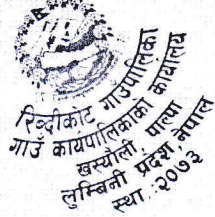 रिब्दीकोट गाउँपालिका
गाउँ कार्यपालिकाको कार्यालय
खस्यौली, पाल्पा
लुम्बिनी प्रदेश, नेपाल
स्था. :२०७३